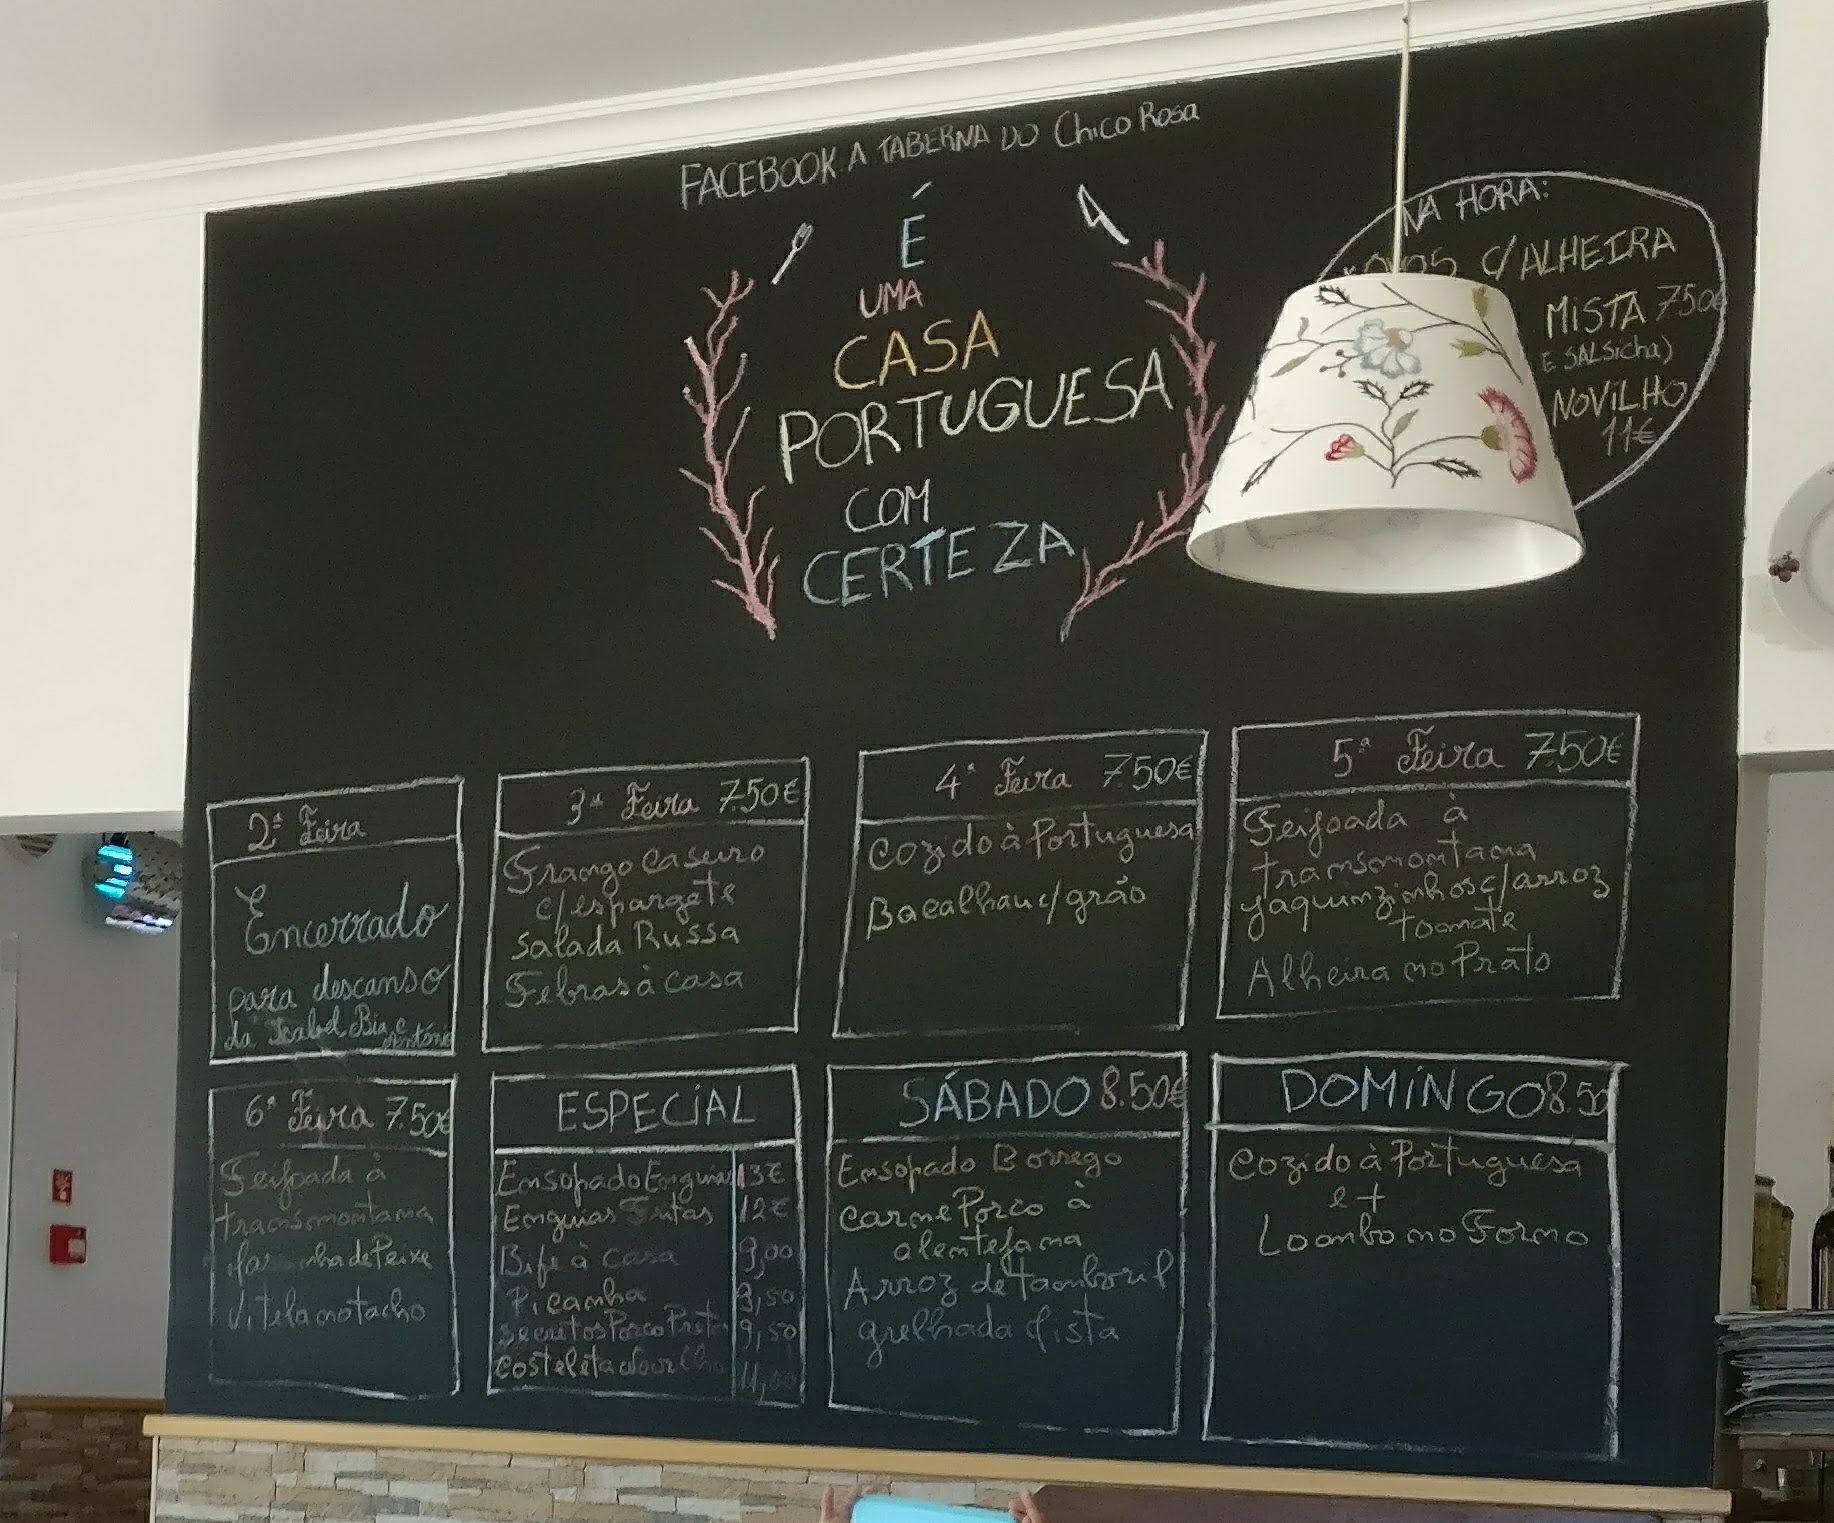 FACEBOOK. A TABERNA DO Chico Rosa
É
UMA
CASA
PORTUGUESA
COM
CERTEZA
NA HORA:
C/ALHEIRA
MISTA 7.50€
E SALSicha)
NOVILHO
11€
2ª Feira
Encerrado
para descanso
da Isabel Bia e
António
3ª Feira 7.50€
Frango Caseiro
c/espargete
Salada Russa
Febras à casa
4ª Feira 7.50€
Cozido à Portuguesa
Bacalhau c/grão
5ª Feira 7.50€
Feijoada à
transmontana
Jaquinzinhos c/arroz
tomate
Alheira no Prato
6ª Feira 7.50€
Feijoada à
transmontana
de Peixe
Vitela no tacho
ESPECIAL
Ensopado Enguias 13€
Enguias Fritas 12€
Bife à casa 9,00
Picanha 9,50
Secretos Porco Preto 9,50
Costeleta Novilho 11,00
SÁBADO 8.50€
Ensopado Borrego
Carne Porco à
alentejana
Arroz de tamboril
grelhada Mista
DOMINGO 8.50
Cozido à Portuguesa
e +
Lombo no Forno